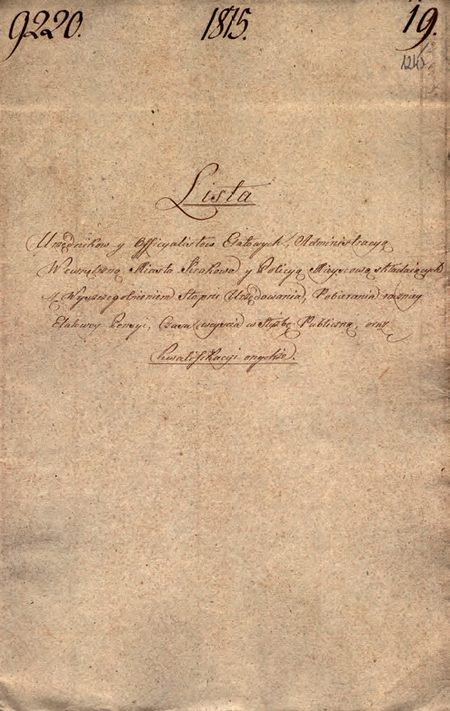 9220. 1815. 19.
Lista
Urzędników y Officyalistów Etatowych, Administracyą
Wewnętrzną Miasta Krakowa y Policyą Mieyscową składaiących
z Wyszczególnieniem Stopnia Urzędowania, Pobierania
Etatowey Pensyi, Czasu weyścia w Służbę Publiczną, oraz
Kwalifikacyi onychże.